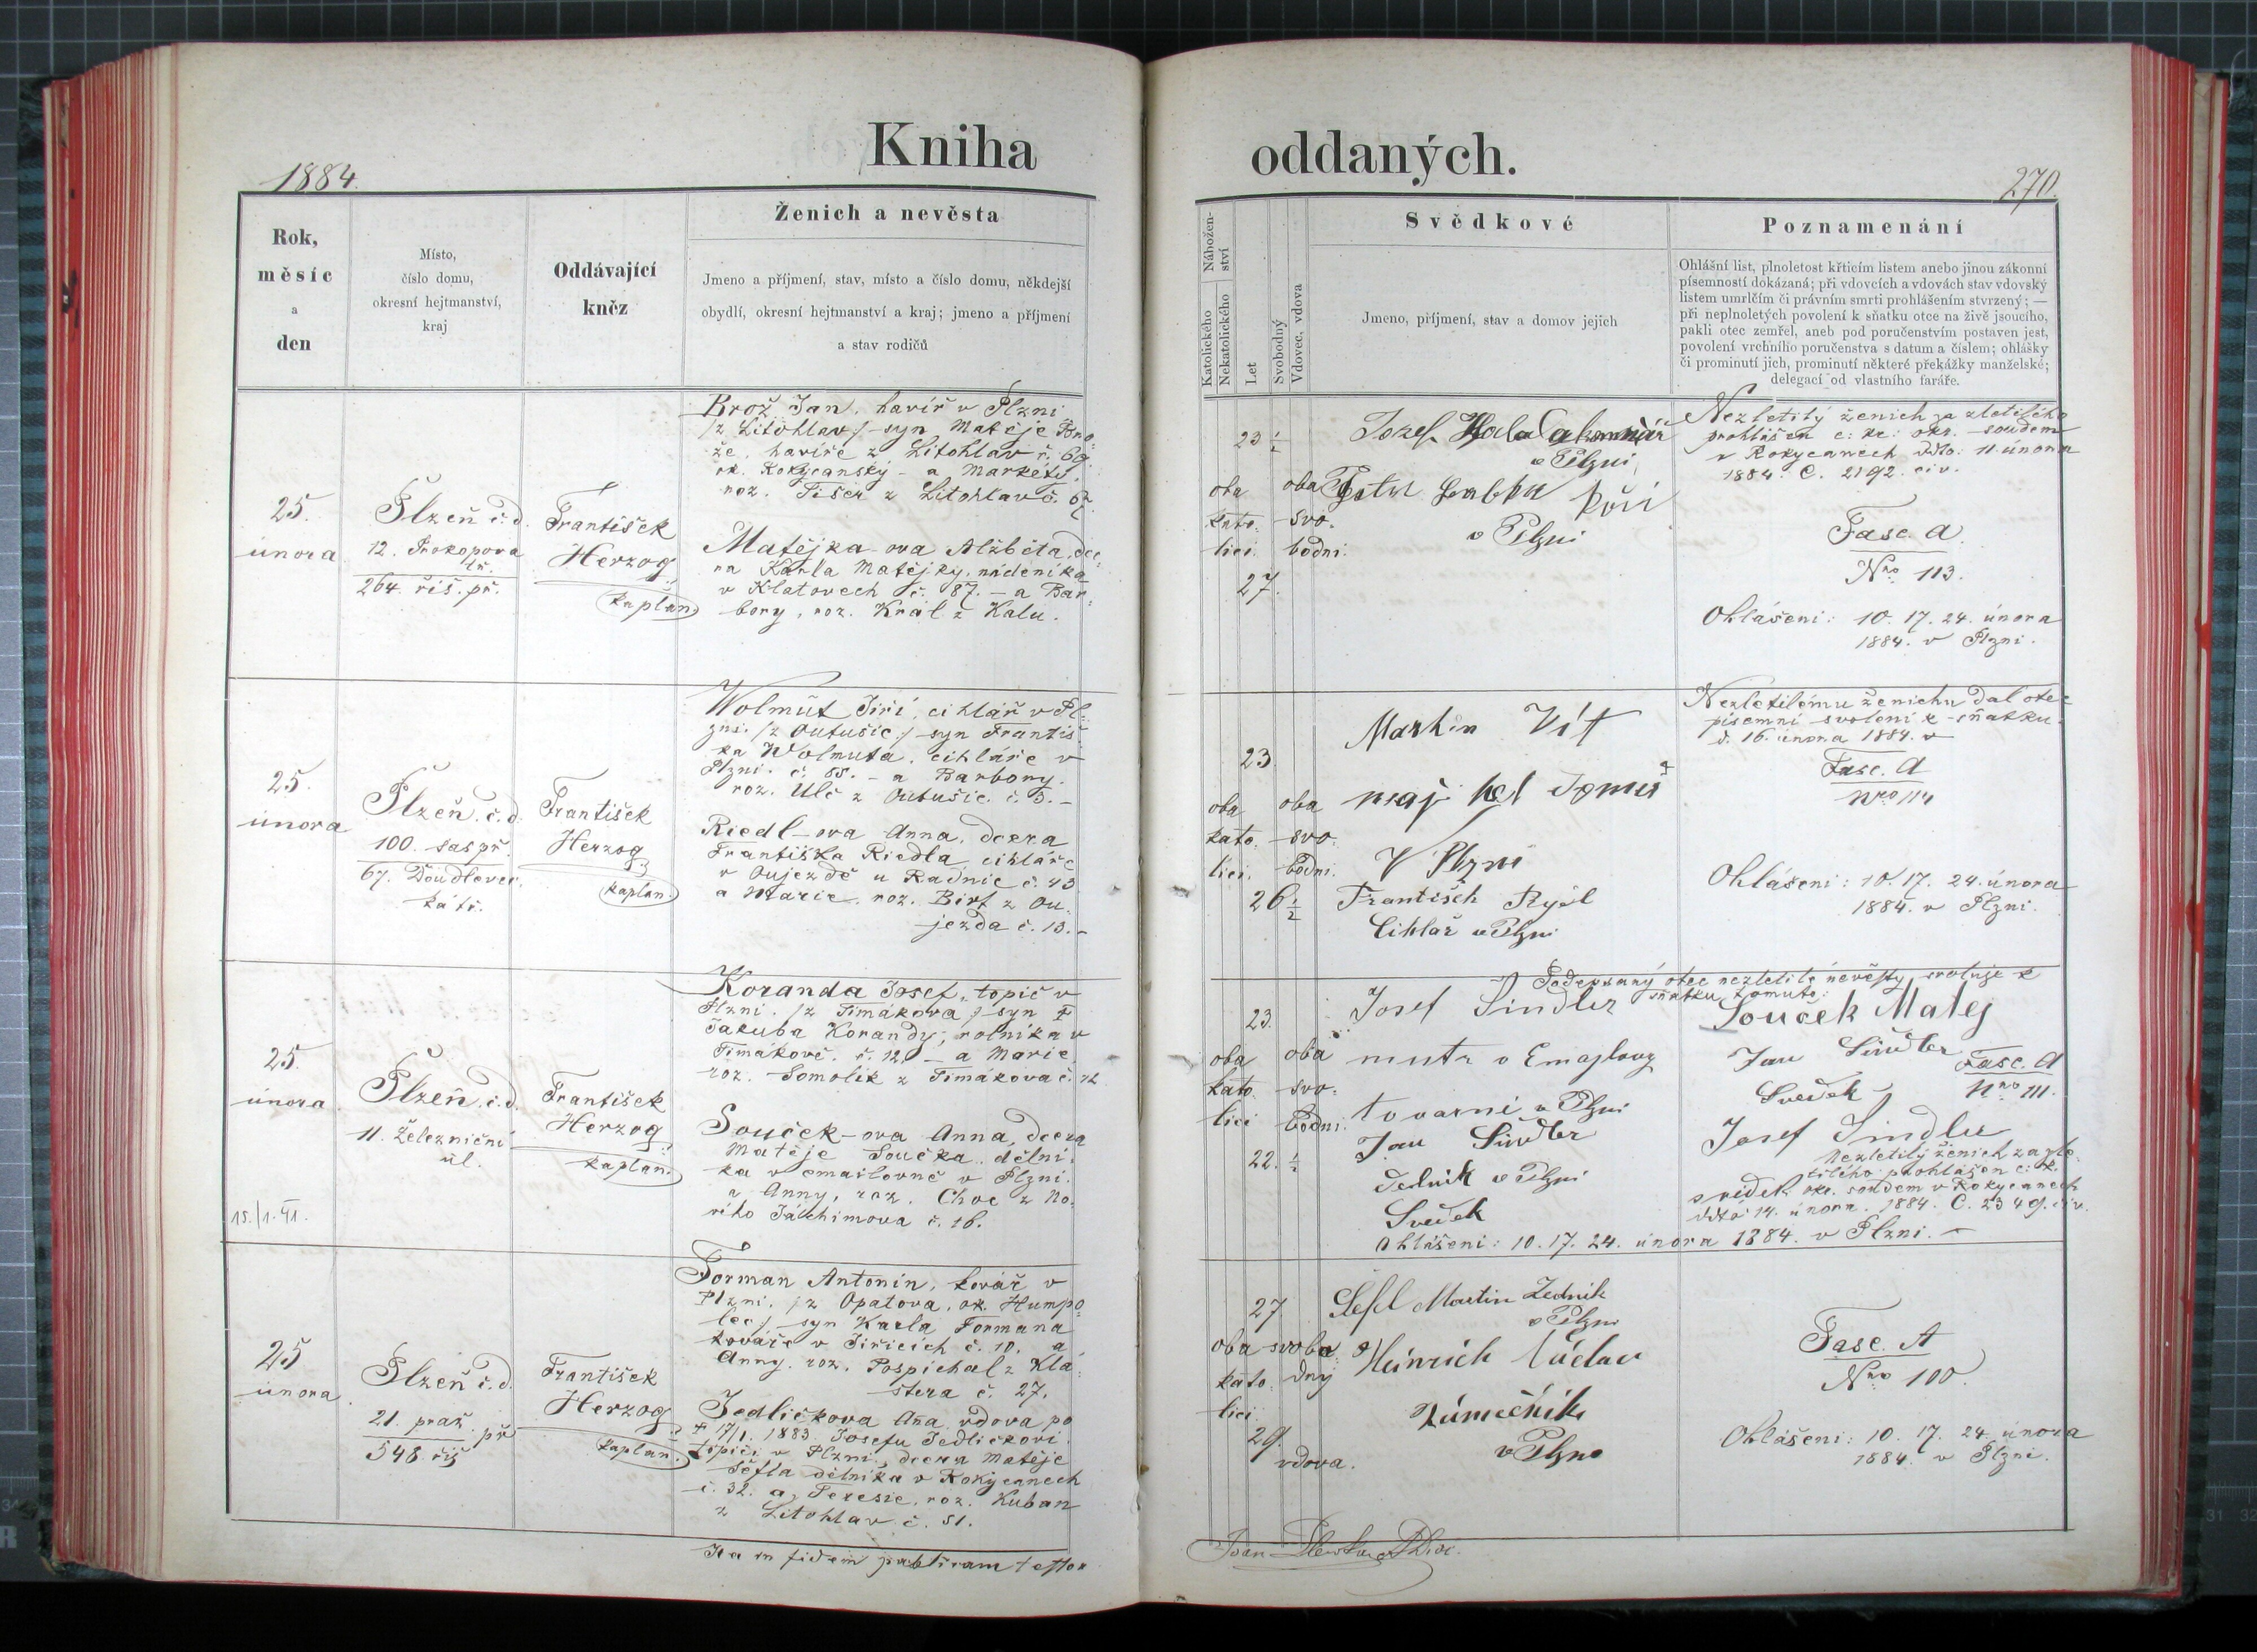 Kniha oddaných.
1884.
270.
Rok,
měsíc
a
den
Místo,
číslo domu,
okresní hejtmanství,
kraj
Oddávající
kněz
Ženich a nevěsta
Jmeno a příjmení, stav, místo a číslo domu, někdejší
obydlí, okresní hejtmanství a kraj; jmeno a příjmení
a stav rodičů
Nábožen-
ství
Katolického
Nekatolického
Let
Svobodný
Vdovec, vdova
Svědkové
Jmeno, příjmení, stav a domov jejich
Poznamenání
Ohlášní list, plnoletost křticím listem anebo jinou zákonní
písemností dokázaná; při vdovcích a vdovách stav vdovský
listem umrlčím či právním smrti prohlášením stvrzený; —
při neplnoletých povolení k sňatku otce na živě jsoucího,
pakli otec zemřel, aneb pod poručenstvím postaven jest,
povolení vrchního poručenstva s datum a číslem; ohlášky
či prominutí jich, prominutí některé překážky manželské;
delegací od vlastního faráře.
25.
února
Plzeň č. d.
12. Prokopova
tř.
264. říš. př.
František
Herzog
kaplan
Brož Jan, havíř v Plzni
/z Litohlav/ syn Matěje Bro-
že, havíře z Litohlav č. 69.
ok. Rokycanský - a Markéty,
roz. Fišer z Litohlav č. 67.
Matějka-ova Alžběta, dce-
ra Karla Matějky, nádeníka
v Klatovech č. 187. - a Bar-
bory, roz. Král z Kalu.
23 1/2
oba
kato-
lici.
27.
oba
svo-
bodni.
Jozef
v Plzni
v Plzni
Nezletilý ženich za zletilého
prohlášen c: kr: okr. soudem
v Rokycanech ddto: 11. února
1884. C. 2192. civ.
Fasc. A
Nro 113.
Ohlášeni: 10. 17. 24. února
1884. v Plzni.
25.
února
Plzeň. č. d.
100. sas př.
67. Doudlevec-
ká tř.
František
Herzog
kaplan.
Wolmut Jiří, cihlář v Pl-
zni. /z Outušic/ syn Františ-
ka Wolmuta, cihláře v
Plzni. č. 88. - a Barbory.
roz. Ulč z Outušic. č. 3. -
Riedl-ova Anna, dcera
Františka Riedla, cihláře
v Oujezdě u Radnic č. 43
a Marie, roz. Birt z Ou-
jezda č. 13. -
23.
oba
kato-
lici.
26 1/2
oba
svo-
bodni.
Martin Vít
V Plzni
František Rýdl
Cihlář v Plzni
Nezletilému ženichu dal otec
písemní svolení k sňatku
d. 16. února 1884. v
Fasc. A
Nro 114
Ohlášeni: 10. 17. 24. února
1884. v Plzni.
25.
února
15./1. 41.
Plzeň. č. d.
11. Železniční
ul.
František
Herzog
kaplan.
Koranda Josef, topič v
Plzni. /z Timákova/ syn †
Jakuba Korandy, rolníka v
Timákově. č. 12. - a Marie,
roz. Somolík z Timákova č. 12
Souček-ova Anna, dcera
Matěje Součka, dělní-
ka v emailovně v Plzni.
a Anny, roz. Choc z No-
vého Jáchimova č. 16.
23.
oba
kato
lici
22. 1/2
oba
svo-
bodni.
Josef Šindler
mistr v Emajlový
továrni v Plzni
Jan Šindler
v Plzni
Svedek
Podepsaný otec nezletilé nevěsty svoluje k
sňatku tomuto:
Souček Matej
Jan Šindler
Svedek
Fasc. A
Nro 111.
Josef Šindler
svědek
Nezletilý ženich za zle-
tilého prohlášen c: k.
okr. soudem v Rokycanech
ddto 14. února. 1884. C. 2349. civ.
Ohlášeni: 10. 17. 24. února 1884. v Plzni. -
25
února
Plzeň č. d.
21. praž. př
548 říš
František
Herzog
kaplan.
Forman Antonín, kovář v
Plzni. /z Opatova, ok. Humpo-
lec/ syn Karla Formana
kováře v Jiřicích č. 10. a
Anny. roz. Pospíchal z Klá-
štera č. 27.
Jedličkova Aña, vdova po
† 17/1. 1883. Josefu Jedličkovi
topiči v Plzni, dcera Matěje
Šefla dělníka v Rokycanech
č. 32. a Teresie, roz. Kuban
z Litohlav č. 51.
27.
oba
kato-
lici.
29.
svobo-
dný
vdova.
Šefl Martin Zedník
v Plzni
Heinrich Václav
Zámečník
v Plzni
Fasc. A
Nro 100.
Ohlášeni: 10. 17. 24. února
1884. v Plzni.
Ita in fidem publicam testor